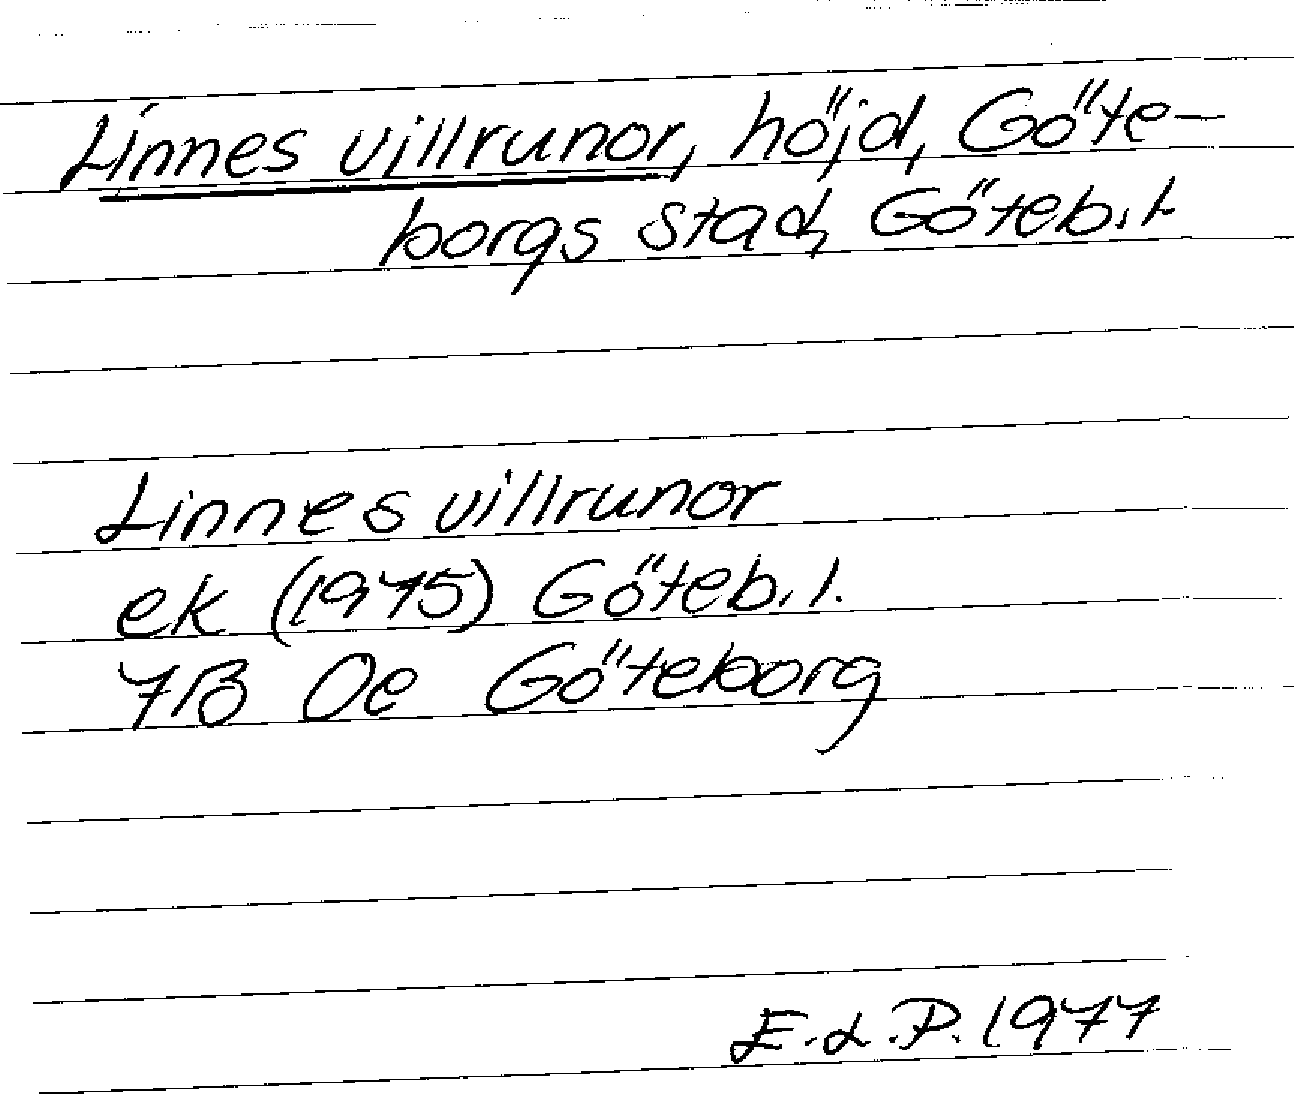 Linnes villrunor, höjd, Göte-
borgs stad, Göteb.l.
Linnes villrunor
ek (1975) Göteb.l.
7B 0e Göteborg
E.L.P. 1977